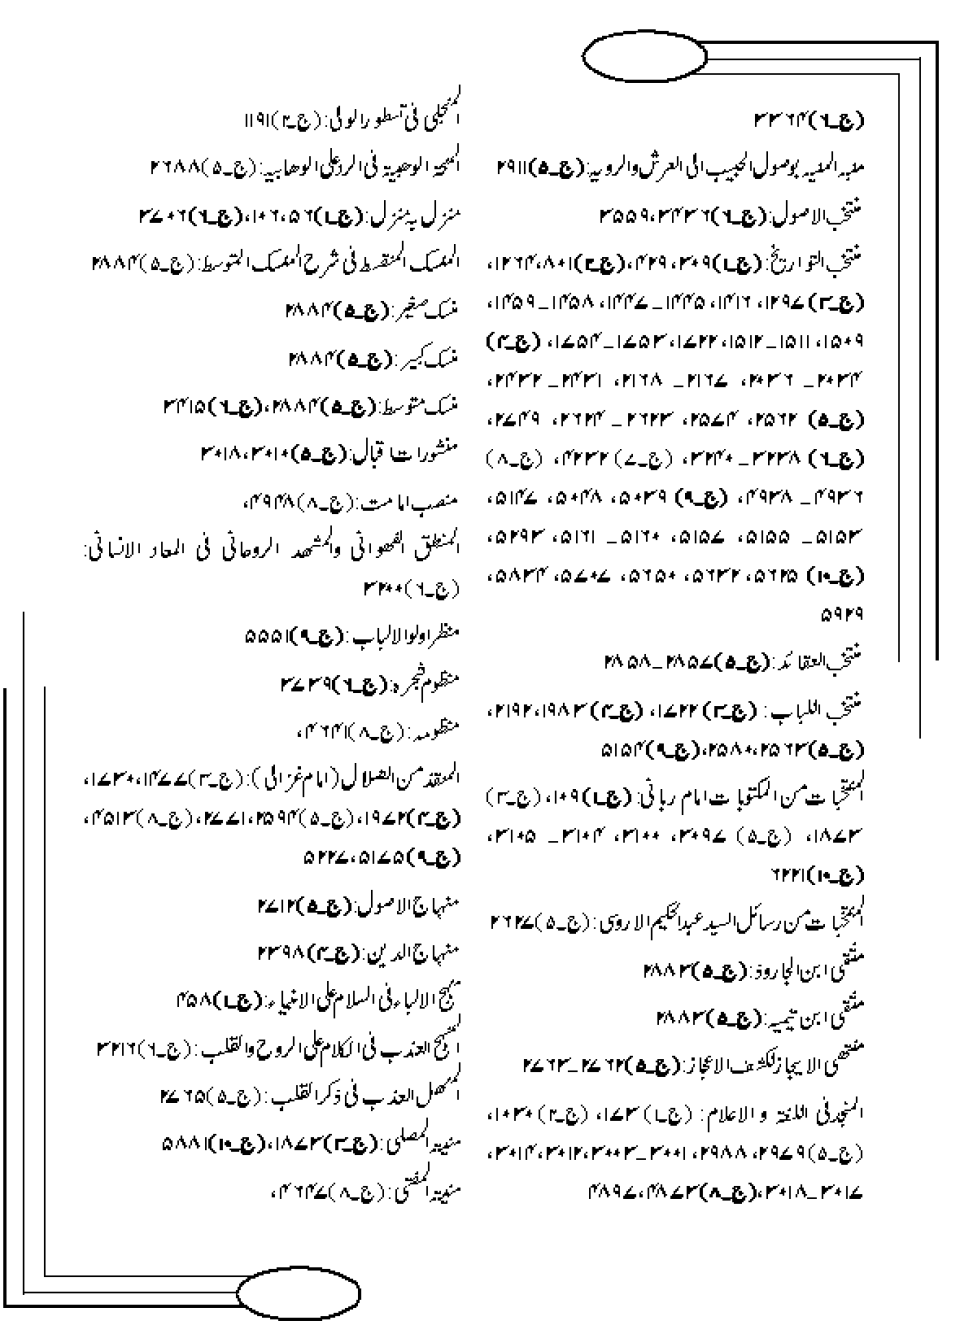 (ج_۶)۳۳۶۴
منبہ المنیہ بوصول الحبیب الی العرش والرویہ:(ج_۵)۲۹۱۱
منتخب الاصول:(ج_۶)۳۴۳۶، ۳۵۵۹
منتخب التواریخ:(ج_۱)۳۰۹، ۴۲۹،(ج_۲)۸۰۱، ۱۲۶۴،
(ج_۳)۱۲۹۷، ۱۴۱۶، ۱۴۴۵_۱۴۴۷، ۱۴۵۸_۱۴۵۹،
۱۵۰۹، ۱۵۱۱_۱۵۱۲، ۱۷۲۲، ۱۷۵۳_۱۷۵۴، (ج_۴)
۲۰۳۴_ ۲۰۳۶، ۲۱۶۷_ ۲۱۶۸، ۲۴۳۱_ ۲۴۳۲،
(ج_۵) ۲۵۶۲، ۲۵۷۴، ۲۶۲۳_ ۲۶۲۴، ۲۷۴۹،
(ج_۶) ۳۲۳۸_ ۳۲۴۰، (ج_۷)۴۲۳۲، (ج_۸)
۴۹۳۶_ ۴۹۳۸، (ج_۹) ۵۰۳۹، ۵۰۴۸، ۵۱۴۷،
۵۱۵۳_ ۵۱۵۵، ۵۱۵۷، ۵۱۶۰_ ۵۱۶۱، ۵۲۹۳،
(ج_۱۰) ۵۶۲۵، ۵۶۳۲، ۵۶۵۰، ۵۷۰۷، ۵۸۳۴،
۵۹۲۹
منتخب العقائد:(ج_۵)۲۸۵۷_۲۸۵۸
منتخب اللباب: (ج_۳)۱۷۲۲، (ج_۴)۱۹۸۳، ۲۱۹۲،
(ج_۵)۲۵۶۳، ۲۵۸۰،(ج_۹)۵۱۵۴
المنتخبات من المکتوبات امام ربانی:(ج_۱)۱۰۹، (ج_۳)
۱۸۷۳، (ج_۵) ۳۰۹۷، ۳۱۰۰، ۳۱۰۴_ ۳۱۰۵،
(ج_۱۰)۶۲۲۱
المنتخبات من رسائل السید عبدالحکیم الاروسی:(ج_۵)۲۶۲۷
منتقی ابن الجارود:(ج_۵)۲۸۸۳
منتقی ابن تیمیہ:(ج_۵)۲۸۸۳
منتھی الایجاز لکشف الاعجاز:(ج_۵)۲۷۶۲_۲۷۶۳
المنجد فی اللغۃ و الاعلام: (ج_۱) ۱۷۳، (ج_۲)۱۰۳۰،
(ج_۵)۲۹۷۹، ۲۹۸۸، ۳۰۰۱_۳۰۰۳، ۳۰۱۲، ۳۰۱۴،
۳۰۱۷_۳۰۱۸،(ج_۸)۴۸۷۳، ۴۸۹۷
المنجلی فی تسطور الولی:(ج_۲)۱۱۹۱
المنحۃ الوھبیۃ فی الرد علی الوھابیہ:(ج_۵)۲۶۸۸
منزل بہ منزل:(ج_۱)۵۶، ۱۰۶،(ج_۶)۳۷۰۶
المنسک المتقسط فی شرح المنسک المتوسط:(ج_۵)۲۸۸۴
منسک صغیر:(ج_۵)۲۸۸۴
منسک کبیر:(ج_۵)۲۸۸۴
منسک متوسط:(ج_۵)۲۸۸۴،(ج_۶)۳۴۱۵
منشورات اقبال:(ج_۵)۳۰۱۰، ۳۰۱۸
منصب امامت:(ج_۸)۴۹۴۸،
المنطق الفھوانی والمشھد الروحانی فی المعاد الانسانی:
(ج_۶)۳۲۰۰
منظر اولوالالباب:(ج_۹)۵۵۵۱
منظوم شجرہ:(ج_۶)۳۷۳۹
منظومہ:(ج_۸)۴۶۴۱،
المنقذ من الضلال (امام غزالی):(ج_۳)۱۴۷۷، ۱۷۳۰،
(ج_۴)۱۹۷۲،(ج_۵)۲۵۹۴، ۲۷۷۱،(ج_۸)۴۵۱۳،
(ج_۹)۵۱۷۵، ۵۲۲۷
منہاج الاصول:(ج_۵)۲۷۱۲
منہاج الدین:(ج_۴)۲۳۹۸
منہج الالباء فی السلام علی الاغبیاء:(ج_۱)۴۵۸
المنہج العذب فی الکلام علی الروح والقلب:(ج_۶)۳۲۱۶
المنھل العذب فی ذکر القلب:(ج_۵)۲۷۶۵
منیۃ المصلی:(ج_۳)۱۸۷۳،(ج_۱۰)۵۸۸۱
منیۃ المفتی:(ج_۸)۴۶۴۷،